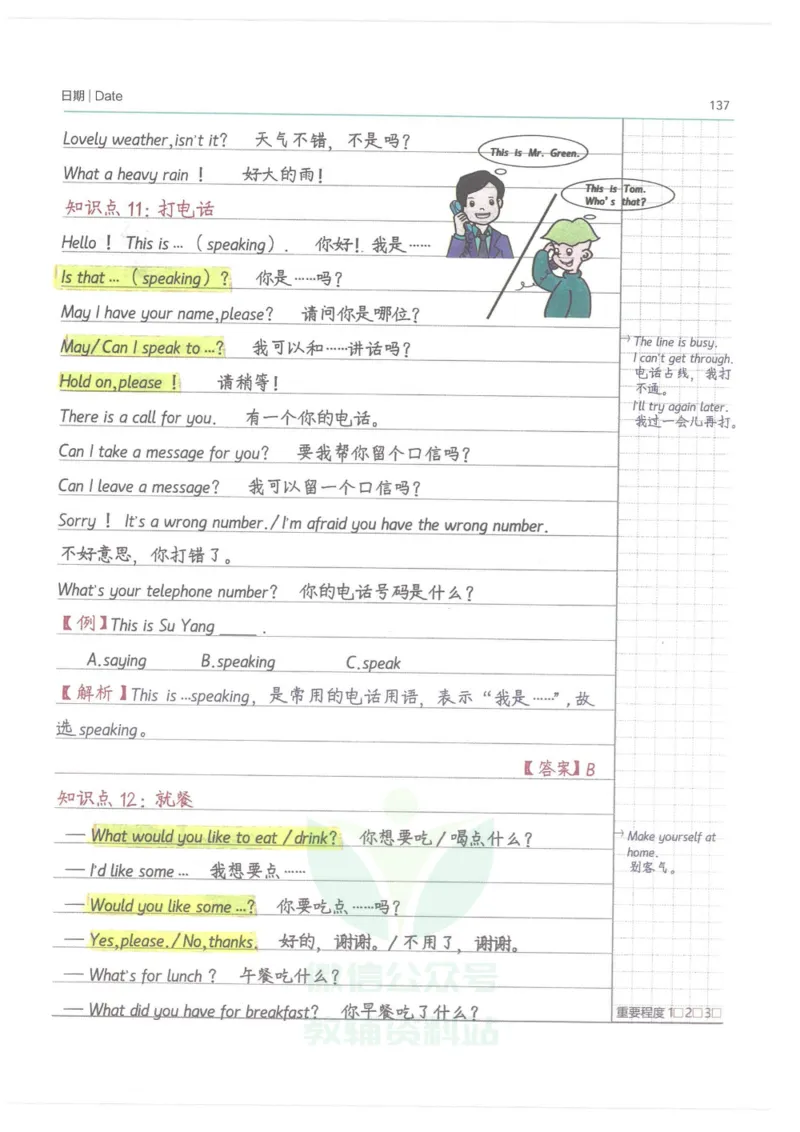 日期 | Date
137
Lovely weather,isn't it? 天气不错，不是吗?
What a heavy rain ! 好大的雨!
This is Mr. Green.
This is Tom.
Who's that?
知识点 11: 打电话
Hello ! This is … ( speaking ) . 你好! 我是……
Is that … ( speaking ) ? 你是……吗?
May I have your name,please? 请问你是哪位?
May/Can I speak to …? 我可以和……讲话吗?
Hold on,please ! 请稍等!
There is a call for you. 有一个你的电话。
Can I take a message for you? 要我帮你留个口信吗?
Can I leave a message? 我可以留一个口信吗?
Sorry ! It's a wrong number./I'm afraid you have the wrong number.
不好意思，你打错了。
What's your telephone number? 你的电话号码是什么?
→ The line is busy.
I can't get through.
电话占线，我打
不通。
I'll try again later.
我过一会儿再打。
【例】This is Su Yang ____ .
A.saying B.speaking C.speak
【解析】This is …speaking，是常用的电话用语，表示“我是……”,故
选 speaking。
【答案】B
知识点 12: 就餐
— What would you like to eat /drink? 你想要吃/喝点什么?
— I'd like some … 我想要点……
— Would you like some …? 你要吃点……吗?
— Yes,please./No,thanks. 好的，谢谢。/不用了，谢谢。
— What's for lunch ? 午餐吃什么?
— What did you have for breakfast? 你早餐吃了什么?
→ Make yourself at
home.
别客气。
微信公众号
教辅资料站
重要程度 1□2□3□